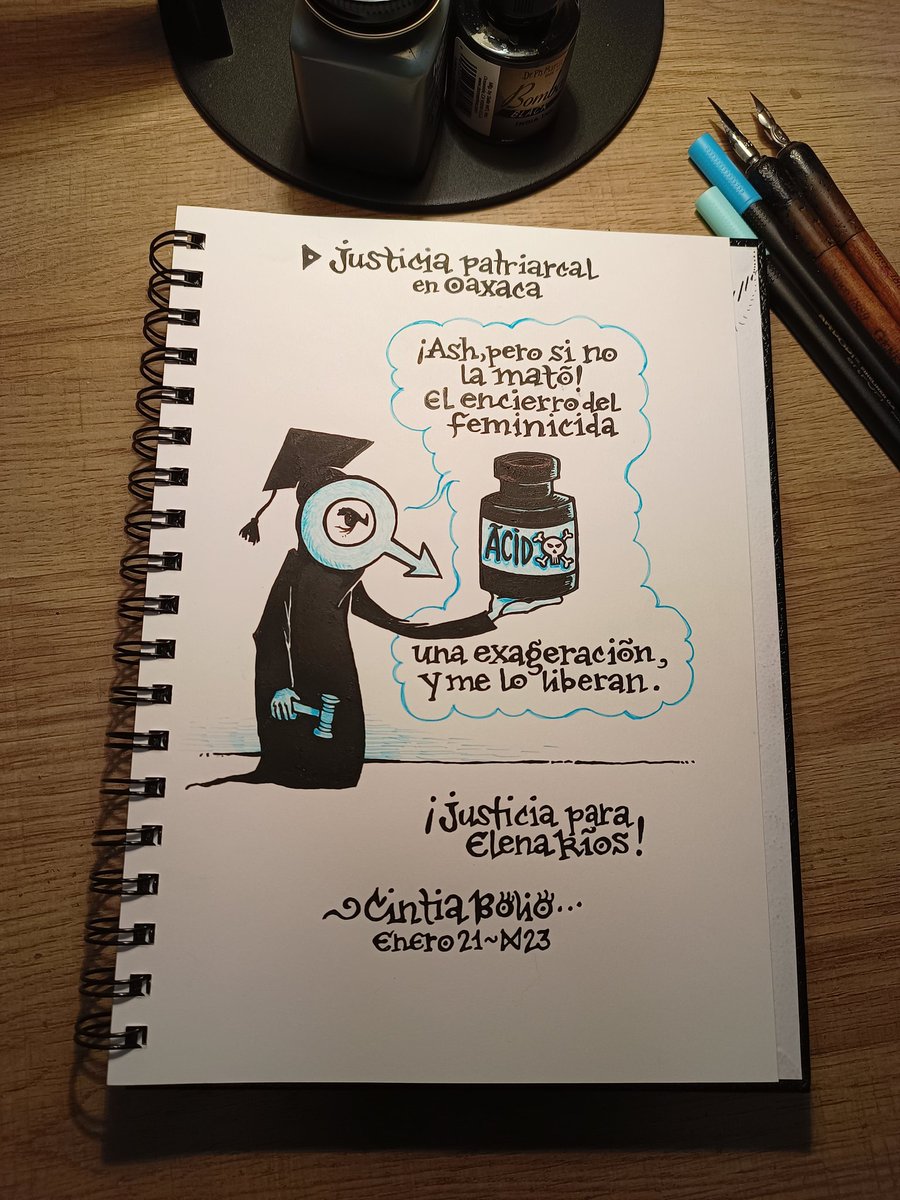 Dr. Ph. Martin's
Bombay
BLACK
INDIA INK
Justicia patriarcal
en Oaxaca
¡Ash, pero si no
la mató!
El encierro del
feminicida
ÁCIDO
una exageración,
y me lo liberan.
¡Justicia para
Elena Ríos!
Cintia Bolio...
Enero 21~23